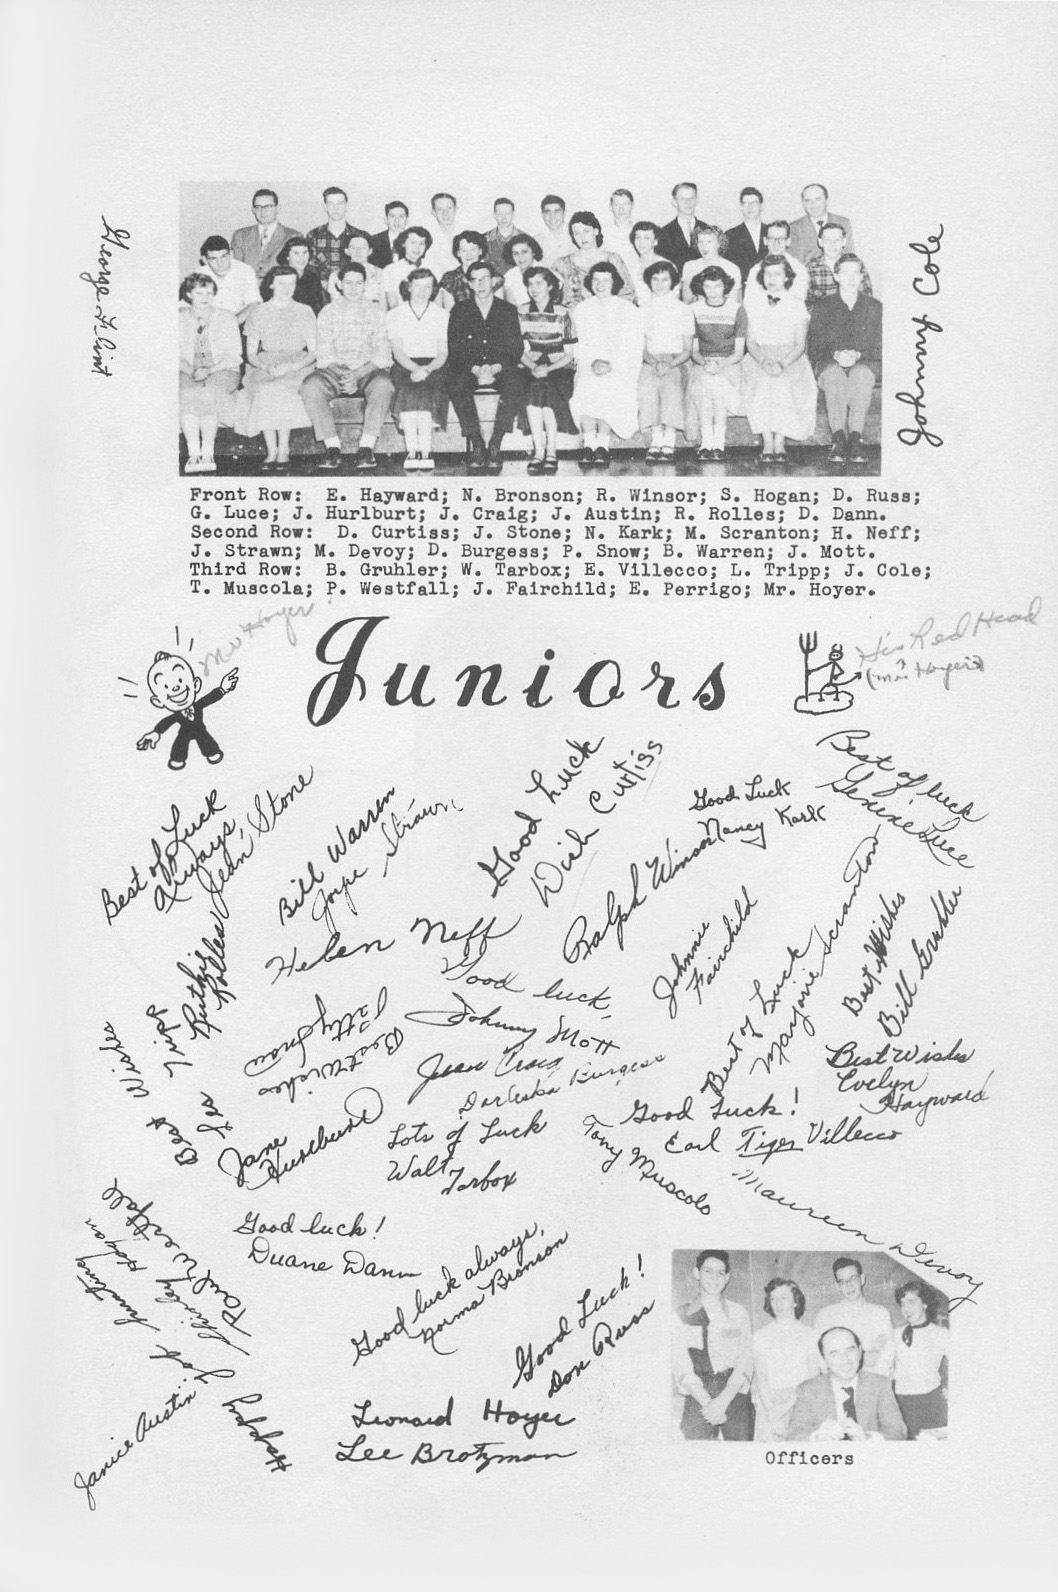 George Flint
Johnny Cole
Front Row: E. Hayward; N. Bronson; R. Winsor; S. Hogan; D. Russ;
G. Luce; J. Hurlburt; J. Craig; J. Austin; R. Rolles; D. Dann.
Second Row: D. Curtiss; J. Stone; N. Kark; M. Scranton; H. Neff;
J. Strawn; M. Devoy; D. Burgess; P. Snow; B. Warren; J. Mott.
Third Row: B. Gruhler; W. Tarbox; E. Villecco; L. Tripp; J. Cole;
T. Muscola; P. Westfall; J. Fairchild; E. Perrigo; Mr. Hoyer.
Mr Hoyer
Juniors
His Red Head
(Mr. Hoyer's)
Best of Luck
Always,
Jean Stone
Bill Warren
Joye Strawn
Good Luck
Dick Curtiss
Good Luck
Nancy Kark
Best of luck
Genene Luce
Helen Neff
Ralph Winsor
Johnnie
Fairchild
Best of Luck
Marjorie Scranton
Best Wishes
Bill Gruhler
Ruthie
Rolles
Best Wishes
Les Tripp
Best Wishes
Patty Snow
Good luck,
Johnny Mott
Jean Craig
Darleska Burgess
Best Wishes
Evelyn
Hayward
Jane
Hurlburt
Lots of Luck
Walt
Tarbox
Good Luck!
Earl Tiger Villecco
Tony Muscolo
Maureen Devoy
Good luck!
Duane Dann
Paul Westfall
Shirley Hogan
Happy job hunting
Janice Austin
Good luck always,
Norma Bronson
Good Luck!
Don Russ
Leonard Hoyer
Lee Brotzman
Officers